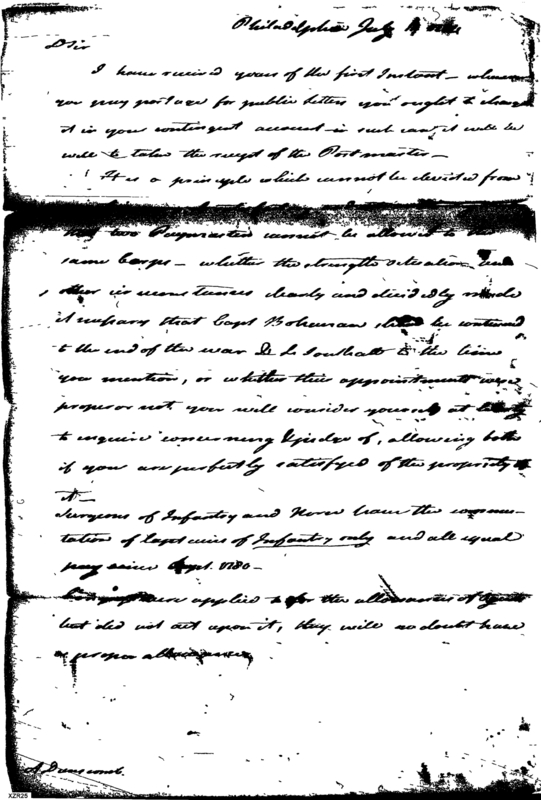 Philadelphia July
D Sir
I have received yours of the first Instant – whenever
you pay postage for public letters you ought to charge
it in your contingent account – in such case it will be
well to take the receipt of the Postmaster –
It is a principle which cannot be deviated from
that two Paymasters cannot be allowed to the
same Corps – whether the strength situation and
other circumstances clearly and decidedly made
it necessary that Capt Bohannan should be continued
to the end of the war & Lt Southall to the time
you mention, or whether their appointments were
proper or not you will consider yourself at liberty
to enquire concerning & judge of, allowing both
if you are perfectly satisfyed of the propriety of
it –
Surgeons of Infantry and Horse have the commu-
tation of Captains of Infantry only and all equal
pay since Sept. 1780 –
were applied to for the allowances of
but did not act upon it, they will no doubt have
a proper allowance
A Dunscomb.
XZR25